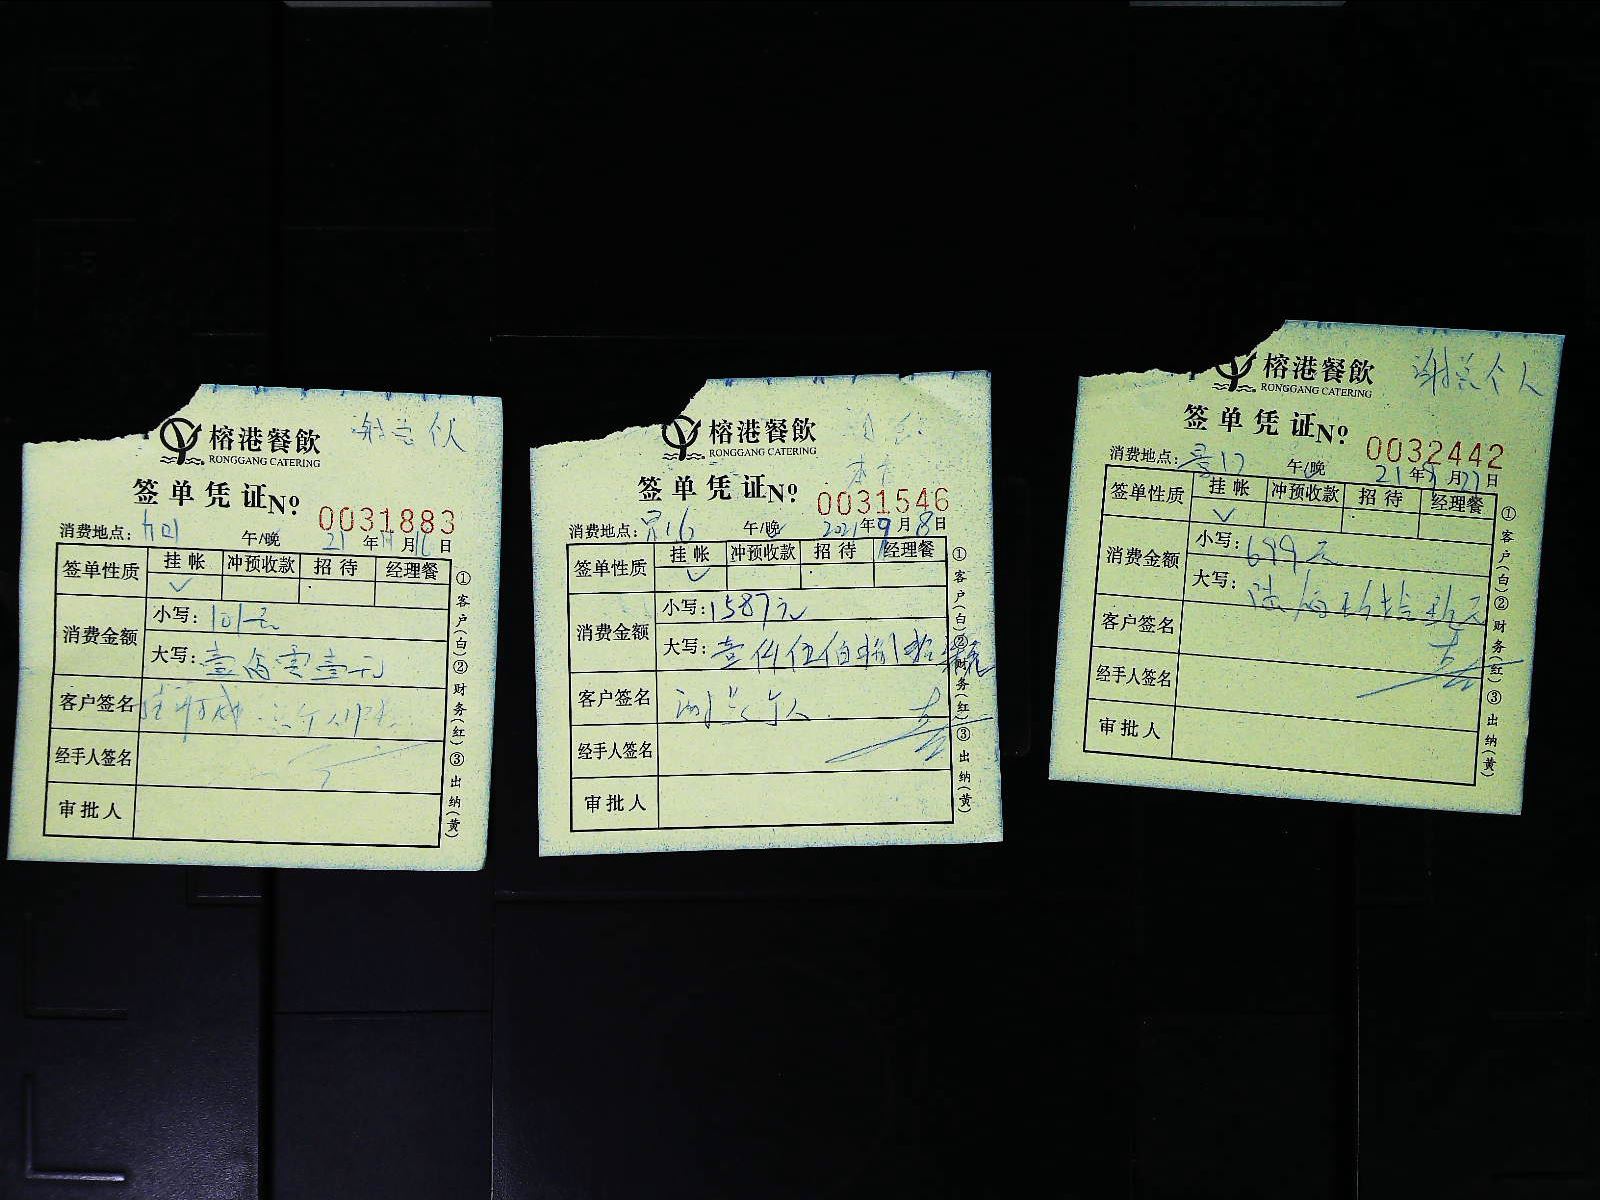 榕港餐飲
RONGGANG CATERING
签单凭证 No 0031883
消费地点： 午/晚 21年 月 日
签单性质 挂帐 冲预收款 招待 经理餐
✓
消费金额 小写：101元
大写：壹佰零壹元
客户签名
经手人签名
审批人
①客户(白)②财务(红)③出纳(黄)
榕港餐飲
RONGGANG CATERING
签单凭证 No 0031546
消费地点： 午/晚 2021年9月8日
签单性质 挂帐 冲预收款 招待 经理餐
✓
消费金额 小写：1587元
大写：壹仟伍佰捌拾柒元
客户签名
经手人签名
审批人
①客户(白)②财务(红)③出纳(黄)
谢总个人
榕港餐飲
RONGGANG CATERING
签单凭证 No 0032442
消费地点： 午/晚 21年 月27日
签单性质 挂帐 冲预收款 招待 经理餐
✓
消费金额 小写：699元
大写：陆佰玖拾玖元
客户签名
经手人签名
审批人
①客户(白)②财务(红)③出纳(黄)